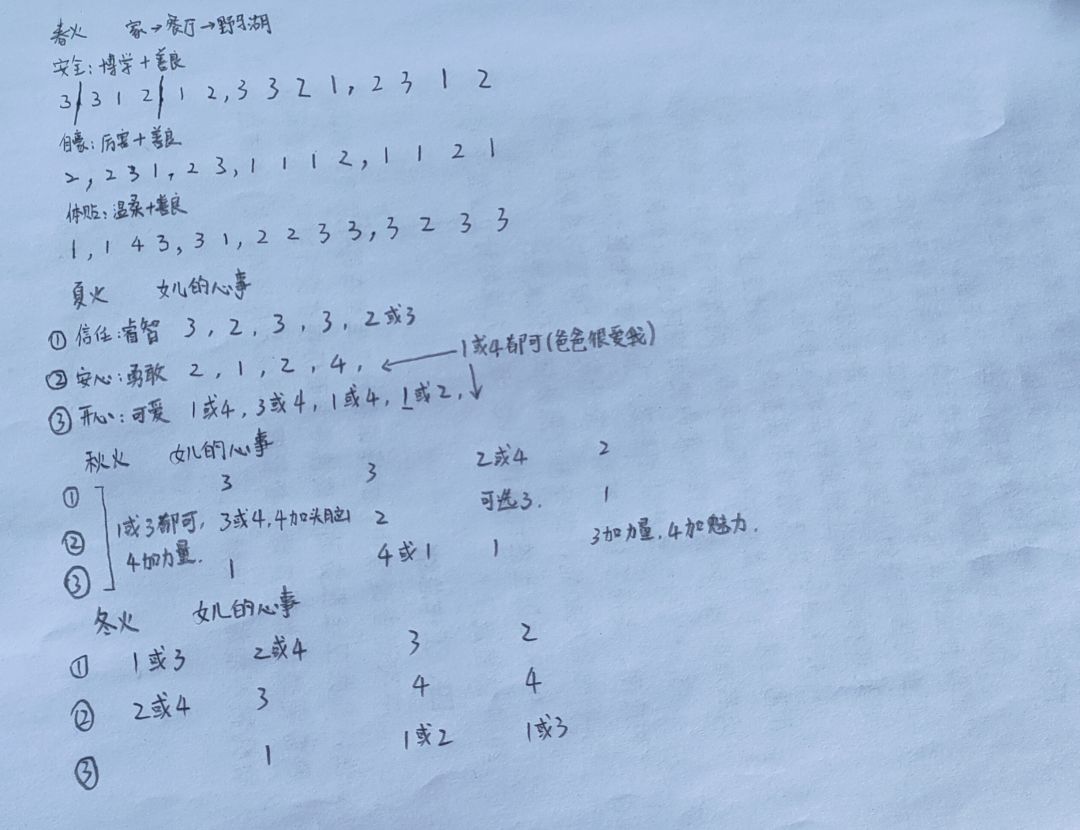 春火 家→餐厅→野牙湖
安全：博学+善良
3/3 1 2/1 2,3 3 2 1,2 3 1 2
自豪：厉害+善良
2,2 3 1,2 3,1 1 1 2,1 1 2 1
体贴：温柔+善良
1,1 4 3,3 1,2 2 3 3,3 2 3 3
夏火 女儿的心事
①信任：睿智 3,2,3,3,2或3
1或4都可(爸爸很爱我)
②安心：勇敢 2,1,2,4,←
③开心：可爱 1或4,3或4,1或4,1或2,↓
秋火 女儿的心事
① 3 3 2或4 2
1或3都可, 3或4,4加头脑 2 可选3. 1
②
4加力量. 3加力量,4加魅力.
③ 1 4或1 1
冬火 女儿的心事
① 1或3 2或4 3 2
② 2或4 3 4 4
③ 1 1或2 1或3